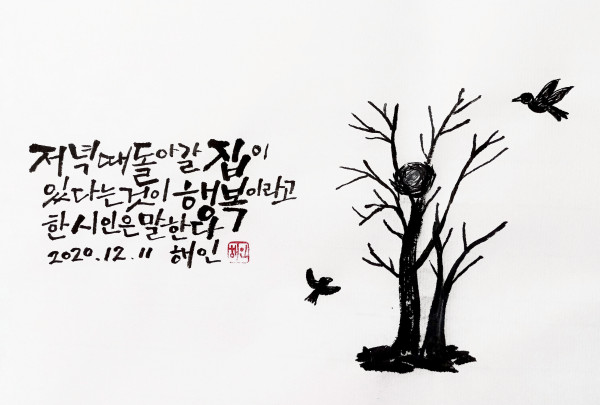 저녁때 돌아갈 집이
있다는것이 행복이라고
한 시인은 말한다
2020.12.11 해인 해인